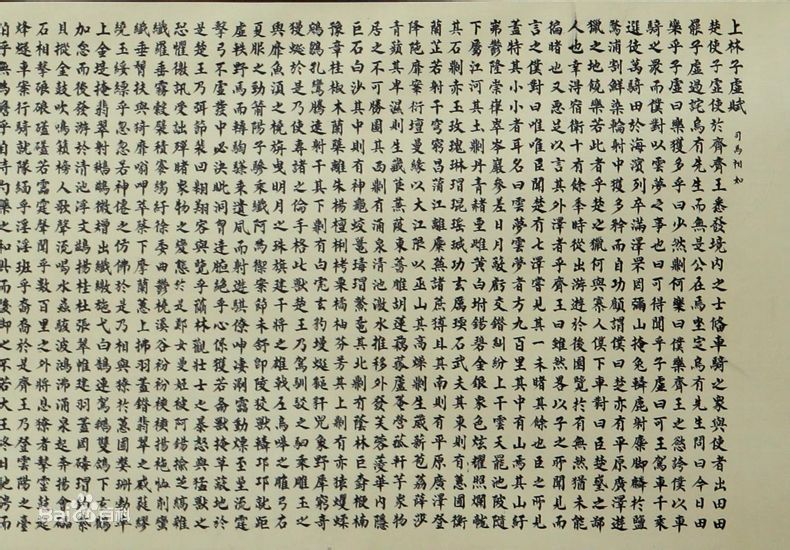 上林子虛賦 司馬相如
楚使子虛使於齊齊王悉發境內之士俻車騎之衆與使者出田田
罷子虛過詫烏有先生而無是公在焉坐定烏有先生問曰今日田
樂乎子虛曰樂獲多乎曰少然則何樂曰僕樂齊王之欲誇僕以車
騎之衆而僕對以雲夢之事也曰可得聞乎子虛曰可王駕車千乘
選徒萬騎田於海濱列卒滿澤罘罔彌山掩兔轔鹿射麋脚麟於鹽
騖浦割鮮染輪射中獲多矜而自功顧謂僕曰楚亦有平原廣澤遊
獵之地饒樂若此者乎楚之獵何與寡人僕下車對曰臣楚國之鄙
人也幸得宿衛十有餘年時從出遊遊於後園覽於有無然猶未能
徧睹也又惡足以言其外澤者乎齊王曰雖然略以子之所聞見而
言之僕對曰唯唯臣聞楚有七澤嘗見其一未睹其餘也臣之所見
蓋特其小小者耳名曰雲夢雲夢者方九百里其中有山焉其山紆
岪鬱隆崇嵂崒岑巖參差日月蔽虧交錯糾紛上干雲天罷池陂陁
下屬江河其土則丹青赭堊雌黃白坿錫碧金銀衆色炫耀照爛龍
其石則赤玉玫瑰琳瑉琨珸瑊玏玄厲瑌石武夫其東則有蕙圃衡
蘭芷若射干穹窮昌蒲江離麋蕪諸蔗猼且其南則有平原廣澤登
降陁靡案衍壇曼緣以大江限以巫山其高燥則生葴薪苞荔薛莎
青薠其卑濕則生藏茛蒹葭東蘠雕胡蓮藕菰蘆菴䕡軒芋衆物
居之不可勝圖其西則有涌泉清池激水推移外發芙蓉蔆華內隱
巨石白沙其中則有神龜蛟鼉瑇瑁鱉黿其北則有陰林巨森楩柟
豫章桂椒木蘭檗離朱楊樝梸梬栗橘柚芬芳其上則有赤猿蠷蝚
鵷鶵孔鸞騰遠射干其下則有白虎玄豹蟃蜒貙犴兕象野犀窮奇
獌狿於是乃使專諸之倫手格此獸楚王乃駕馴駁之駟乘雕玉之
輿靡魚須之橈旃曳明月之珠旗建干將之雄戟左烏嗥之雕弓右
夏服之勁箭陽子驂乘纖阿為御案節未舒即陵狡獸轔邛邛蹵距
虛軼野馬而轊騊駼乘遺風而射遊騏倏眒淒浰雷動熛至星流霆
擊弓不虛發中必決眥洞胸達腋絕乎心係獲若雨獸掩草蔽地於
是楚王乃弭節裴回翱翔容與覽乎陰林觀壯士之暴怒與猛獸之
恐懼徼䤼受詘殫睹衆物之變態於是鄭女曼姬被阿錫揄紵縞雜
纖羅垂霧縠襞積褰縐紆徐委曲鬱橈溪谷衯衯裶裶揚袘恤削蜚
纖垂髾扶與猗靡噏呷萃蔡下摩蘭蕙上拂羽蓋錯翡翠之威蕤繆
繞玉綏縹乎忽忽若神僊之仿佛於是乃相與獠於蕙圃媻珊勃窣
上金堤揜翡翠射鵕鸃微矰出纖繳施弋白鵠連駕鵝雙鶬下玄鶴
加怠而後發游於清池浮文鷁揚桂枻張翠帷建羽蓋罔瑇瑁釣紫
貝摐金鼓吹鳴籟榜人歌聲流喝水蟲駭波鴻沸涌泉起奔揚會礧
石相擊硠硠礚礚若雷霆之聲聞乎數百里之外將息獠者擊靈鼓起
烽燧車案行騎就隊纚乎淫淫班乎裔裔於是楚王乃登陽雲之臺
泊乎無為澹乎自持勺藥之和具而後御之不若大王終日馳騁而